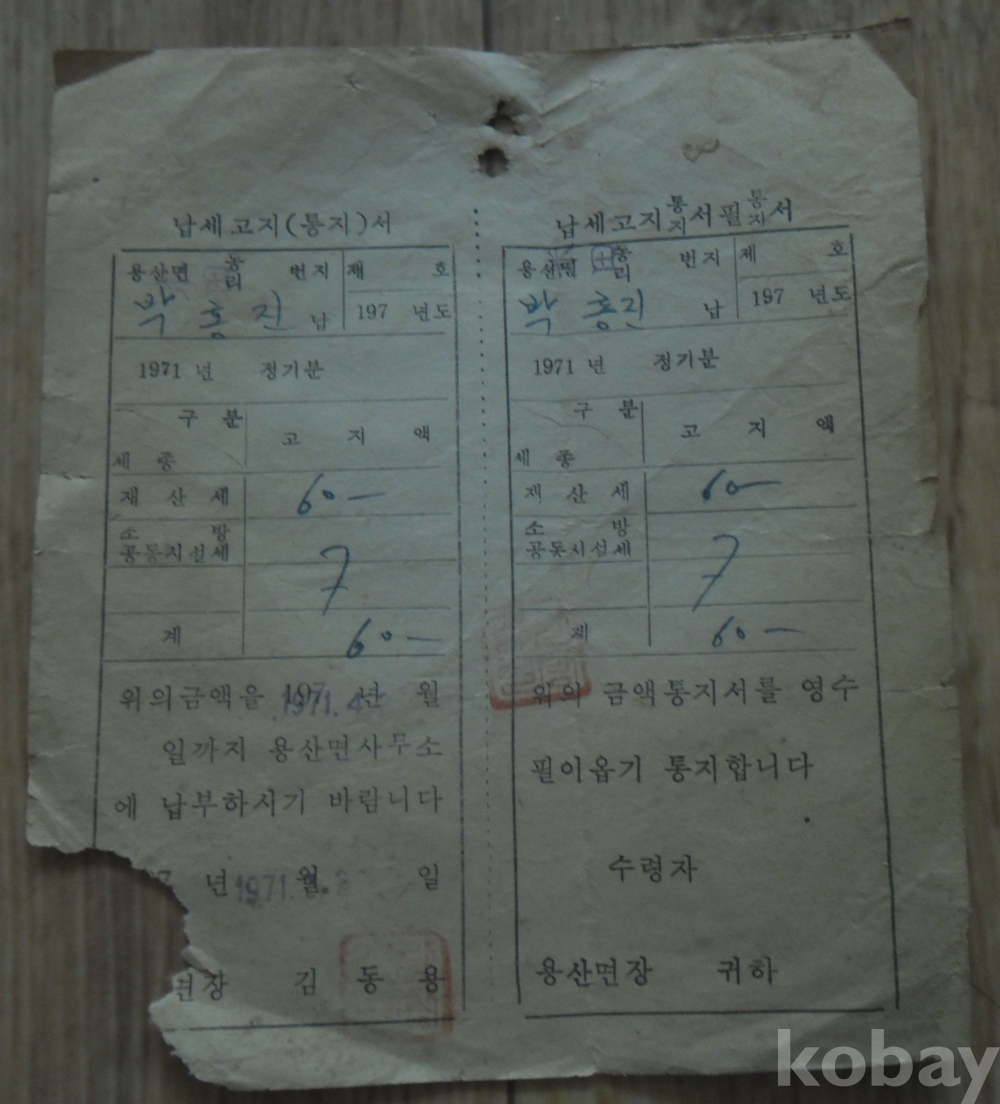 납세고지(통지)서
용산면 동리 번지 제 호
박홍진 납 197 년도
1971년 정기분
구분
고지액
세종
재산세 60-
소방
공동시설세 7
계 60-
위의금액을 197 년 월
1971.4
일까지 용산면사무소
에 납부하시기 바랍니다
년 월 일
1971.
면장 김동용
납세고지통지서필통지서
용산면 리 번지 제 호
박홍진 납 197 년도
1971년 정기분
구분
고지액
세종
재산세 60-
소방
공동시설세 7
계 60-
위의 금액통지서를 영수
필이옵기 통지합니다
수령자
용산면장 귀하
kobay